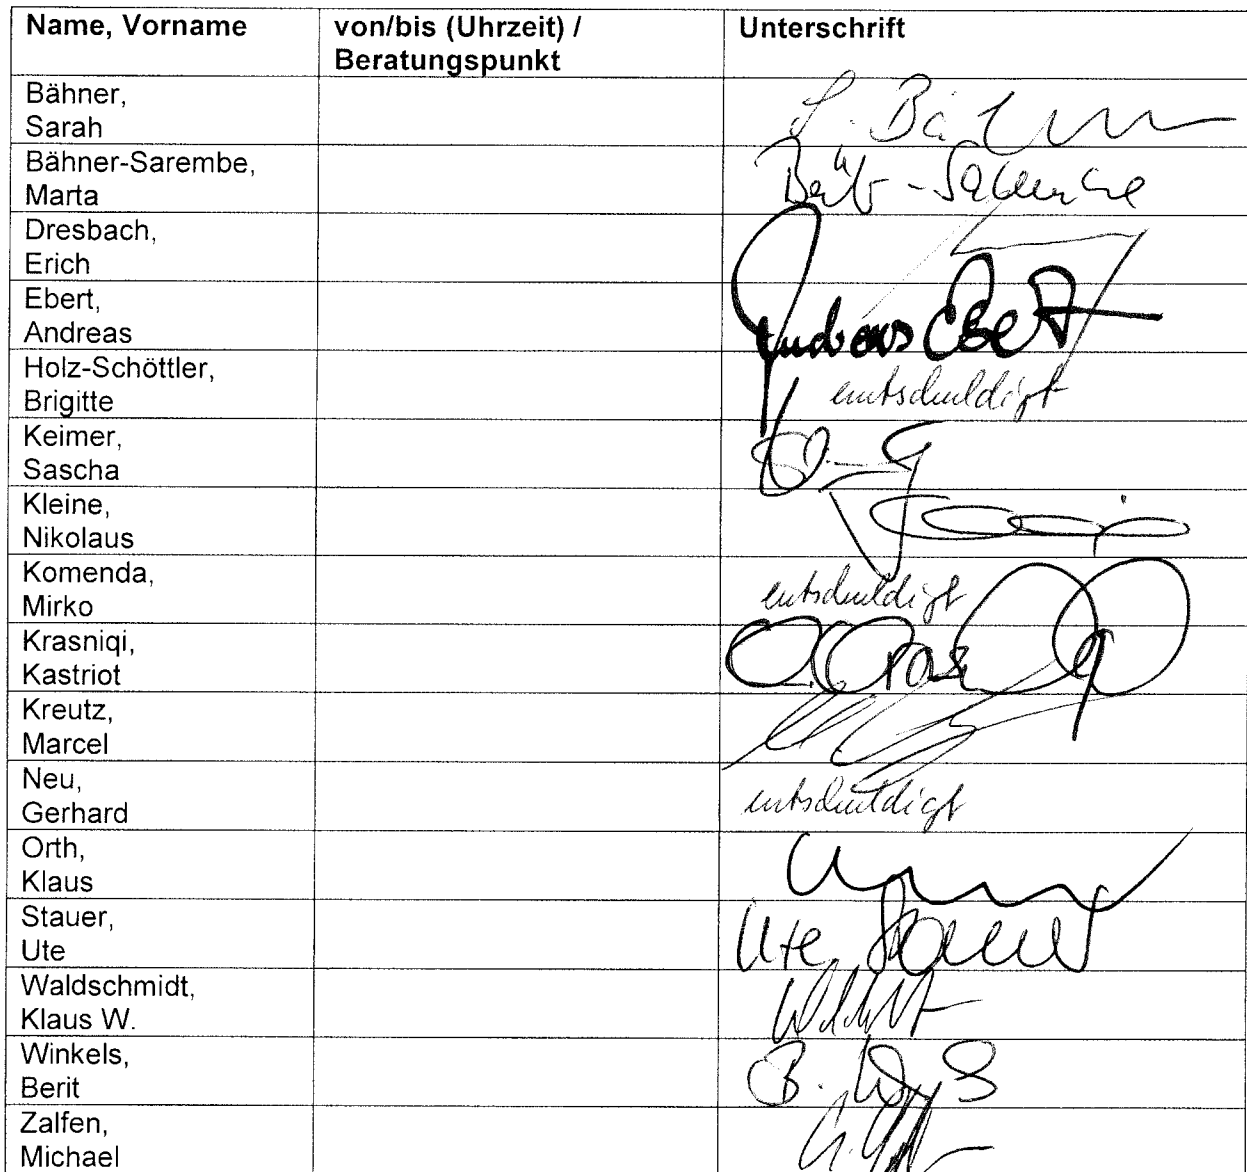 Name, Vorname von/bis (Uhrzeit) / Unterschrift
Beratungspunkt
Bähner,
Sarah S. Bähner
Bähner-Sarembe,
Marta
Dresbach,
Erich
Ebert,
Andreas Andreas Ebert
Holz-Schöttler,
Brigitte entschuldigt
Keimer,
Sascha
Kleine,
Nikolaus
Komenda,
Mirko entschuldigt
Krasniqi,
Kastriot
Kreutz,
Marcel
Neu,
Gerhard entschuldigt
Orth,
Klaus
Stauer,
Ute Ute Stauer
Waldschmidt,
Klaus W.
Winkels,
Berit
Zalfen,
Michael